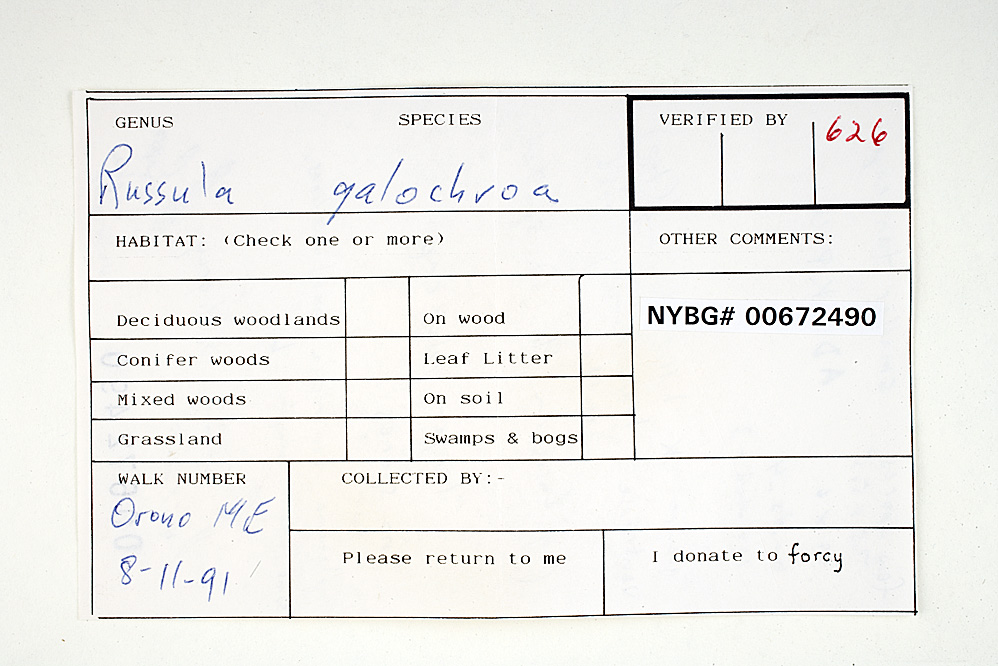 GENUS SPECIES VERIFIED BY 626
Russula galochroa
HABITAT: (Check one or more) OTHER COMMENTS:
NYBG# 00672490
Deciduous woodlands On wood
Conifer woods Leaf Litter
Mixed woods On soil
Grassland Swamps & bogs
WALK NUMBER COLLECTED BY:-
Orono ME
Please return to me I donate to forcy
8-11-91